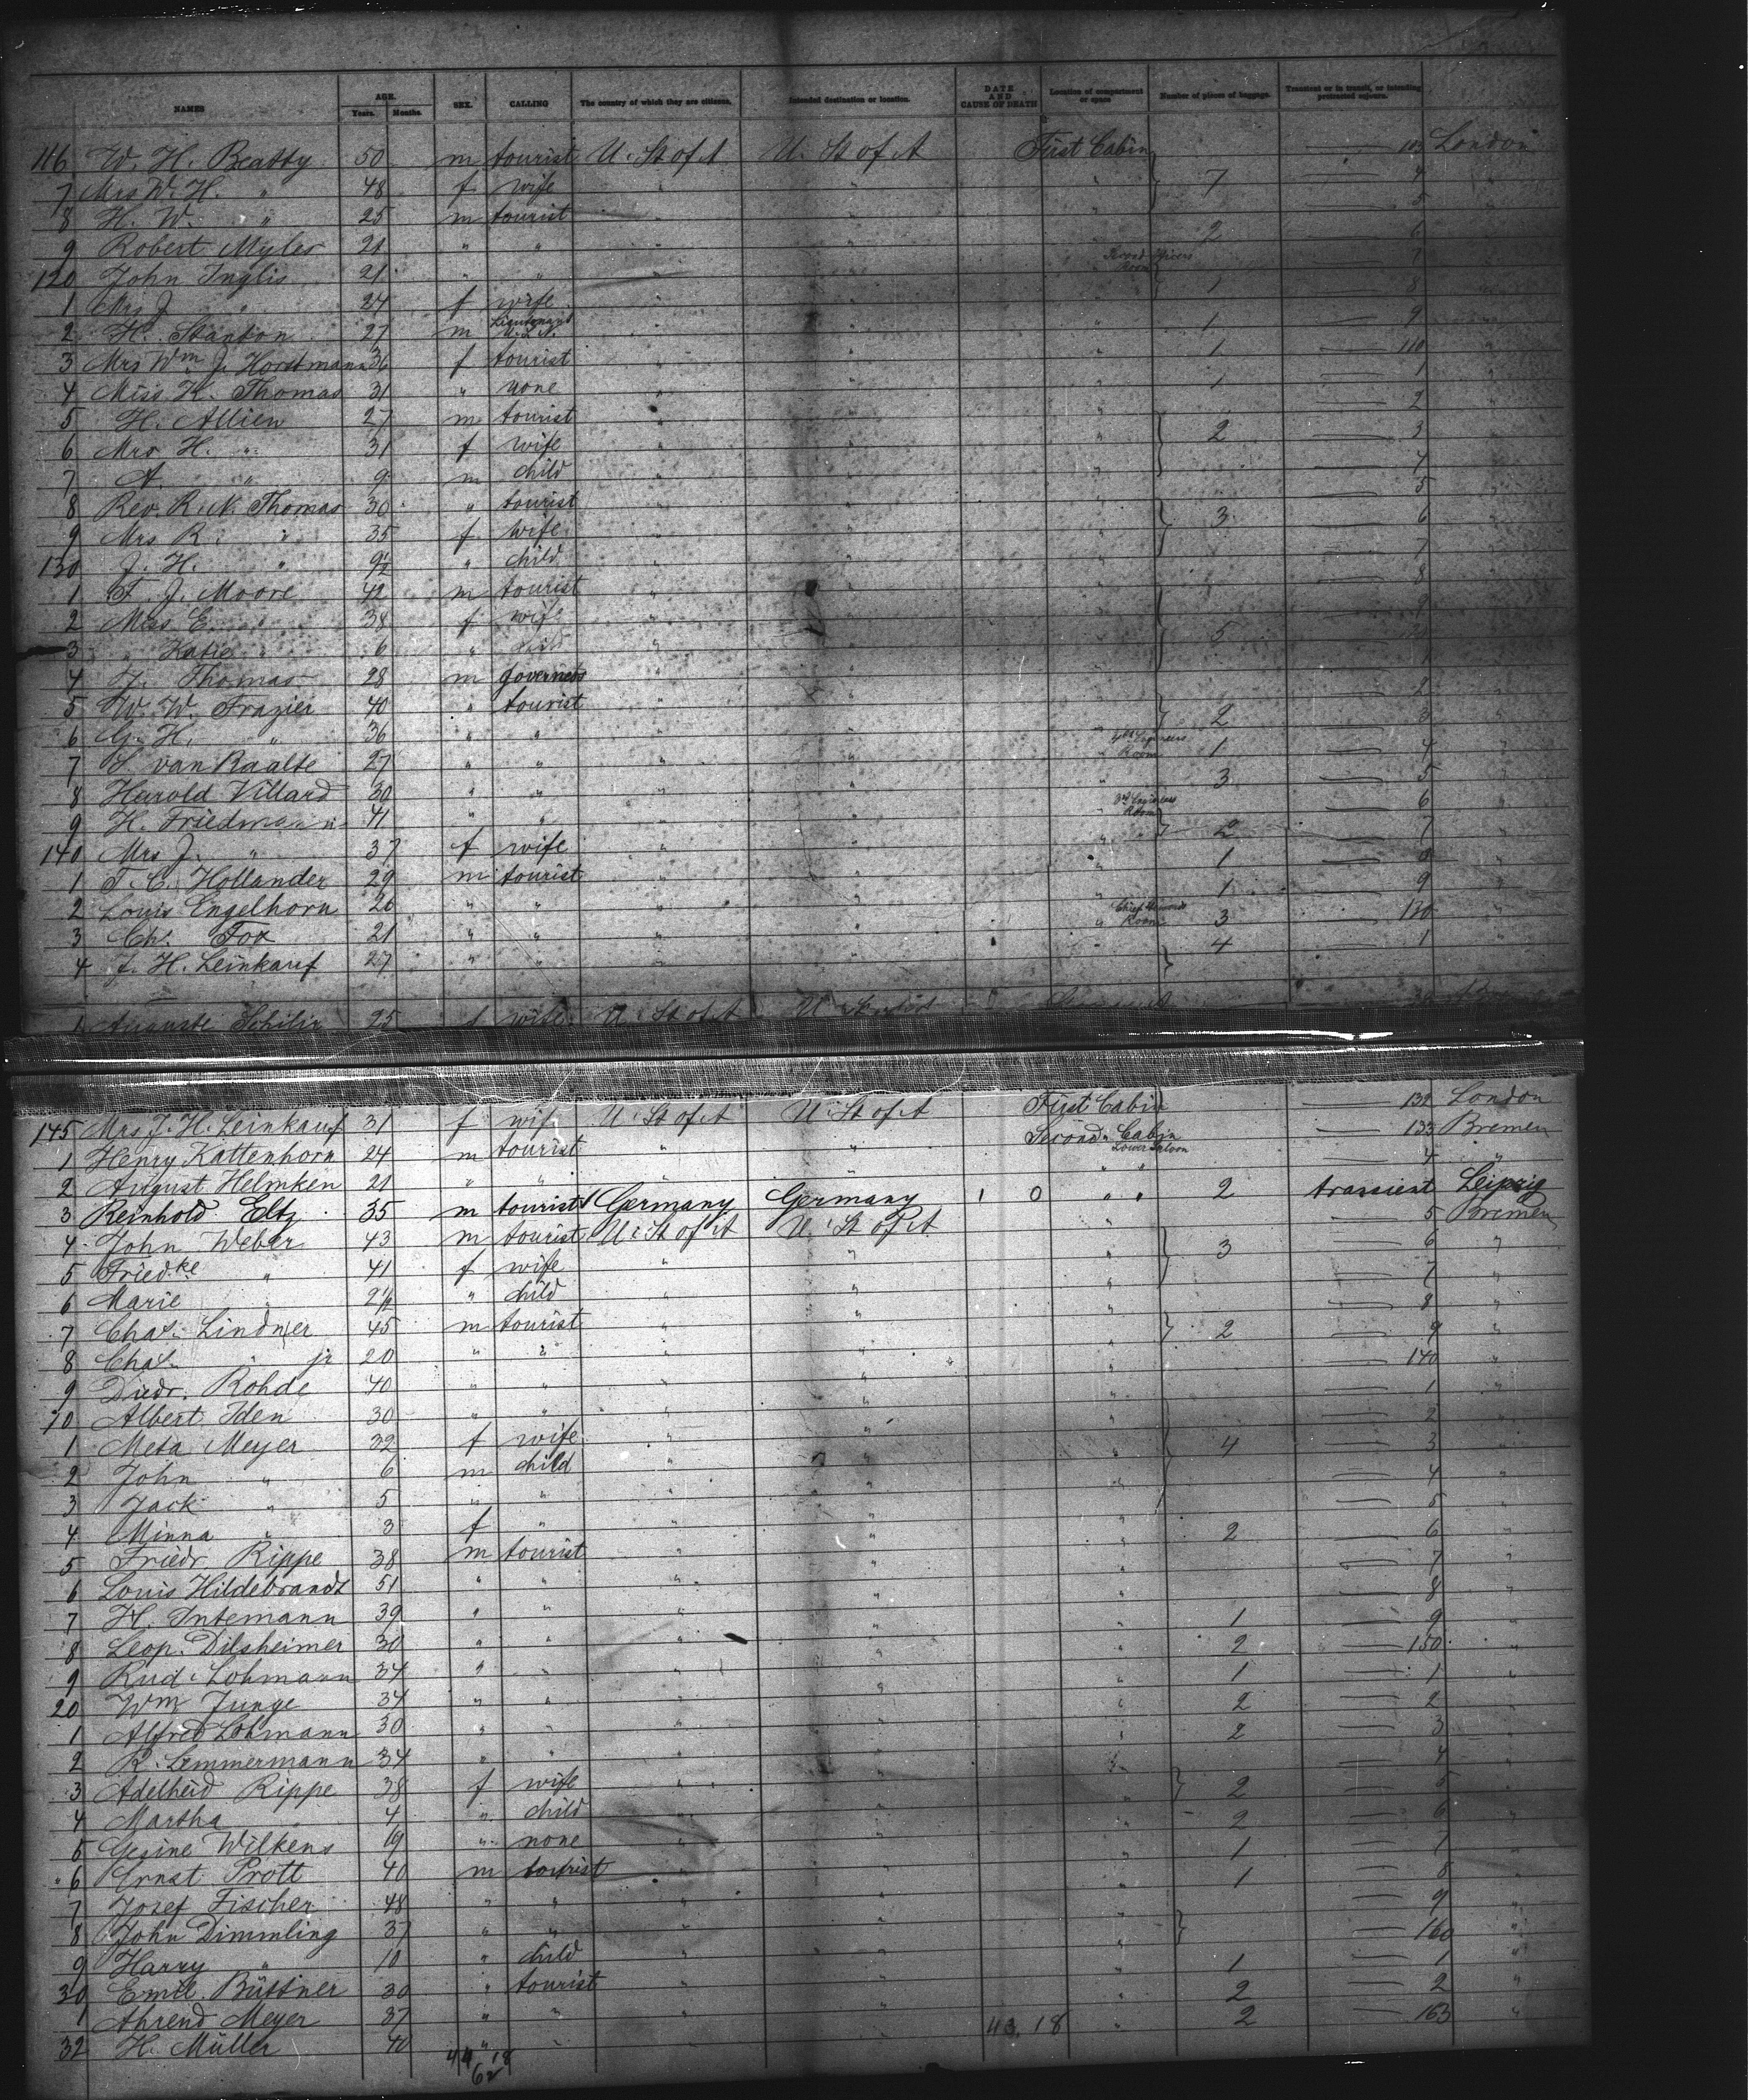 NAMES AGE. Years. Months. SEX. CALLING The country of which they are citizens. Intended destination or location. DATE AND CAUSE OF DEATH Location of compartment or space Number of pieces of baggage. Transient or in transit, or intending protracted sojourn.
116 W. H. Beatty 50 m tourist U. St of A U. St of A First Cabin — 103 London
7 Mrs W. H. " 48 f wife " " " 7 — 4
8 H. W. " 25 m tourist " " — 5
9 Robert Myles 21 " " " " 2 — 6
120 John Inglis 21 " " " " Second Officers Room — 7
1 Mrs J. " 24 f wife " " 1 — 8
2 H. Stanton 27 m Lieutenant U.S.N. " " " 1 — 9
3 Mrs Wm J. Horstmann 36 f tourist " " " 1 — 110
4 Miss K. Thomas 31 " none " " " 1 — 1
5 H. Allien 27 m tourist " " " — 2
6 Mrs H. " 31 f wife " " " 2 — 3
7 A. " 9 m child " " " — 4
8 Rev. R. N. Thomas 30 " tourist " " " — 5
9 Mrs R. " 35 f wife " " " 3 — 6
130 J. H. " 9½ " child " " " — 7
1 F. J. Moore 42 m tourist " " " — 8
2 Miss E. 38 f wife " " " — 9
3 " Katie " 6 " " " " 5 —
4 Thomas 28 m governess " " " — 1
5 W. W. Frazier 40 " tourist " " " — 2
6 G. H. " 36 " " " " " 2 — 3
7 S. van Raalte 27 " " " " " Room 1 — 4
8 Harold Villard 30 " " " " " 3 — 5
9 H. Friedmann 41 " " " " 3rd Engineers Room — 6
140 Mrs J. " 37 f wife " " " 2 — 7
1 T. C. Hollander 29 m tourist " " " 1 — 8
2 Louis Engelhorn 26 " " " " " 1 — 9
3 Ch. Fox 21 " " " " " Chief Stewards Room 3 — 130
4 J. H. Leinkauf 27 " " " " 4 — 1
1 Auguste Schilir 25 f wife U. St of A
145 Mrs J. H. Leinkauf 31 f wife U. St of A U. St of A First Cabin — 132 London
1 Henry Kattenhorn 24 m tourist " " Second Cabin Lower Saloon — 133 Bremen
2 August Helmken 21 " " " " " " — 4 "
3 Reinhold Eltz 35 m tourist Germany Germany 1 0 " " 2 transient Leipzig
4 John Weber 43 m tourist U. St of A U. St of A " — 5 Bremen
5 Friedke " 41 f wife " " " 3 — 6 "
6 Marie " 2½ " child " " " — 7 "
7 Chas. Lindner 45 m tourist " " " — 8 "
8 Chas. " jr 20 " " " " " 2 — 9 "
9 Diedr. Rohde 40 " " " " " — 140 "
10 Albert Iden 30 " " " " " — 1 "
1 Meta Meyer 32 f wife " " " — 2 "
2 John " 6 m child " " " 4 — 3 "
3 Jack " 5 " " " " " — 4 "
4 Minna " 3 f " " " " — 5 "
5 Friedr. Rippe 38 m tourist " " " 2 — 6 "
6 Louis Hildebrandt 51 " " " " " — 7 "
7 H. Intemann 39 " " " " " — 8 "
8 Leop. Dilsheimer 30 " " " " " 1 — 9 "
9 Rud. Lohmann 34 " " " " " 2 — 150 "
20 Wm Junge 34 " " " " " 1 — 1 "
1 Alfred Lohmann 30 " " " " " 2 — 2 "
2 R. Lemmermann 34 " " " " " 2 — 3 "
3 Adelheid Rippe 38 f wife " " " — 4 "
4 Martha 4 " child " " " 2 — 5 "
5 Gesine Wilkens 19 " none " " " 2 — 6 "
6 Ernst Prott 40 m tourist " " " 1 — 7 "
7 Josef Fischer 48 " " " " " 1 — 8 "
8 John Dimmling 37 " " " " " — 9 "
9 Harry " 10 " child " " " — 160 "
30 Emil Büttner 30 " tourist " " " 1 — 1 "
1 Ahrend Meyer 37 " " " " " 2 — 2 "
32 H. Müller 40 " " " " 43 18 " 2 — 163 "
44 18
62